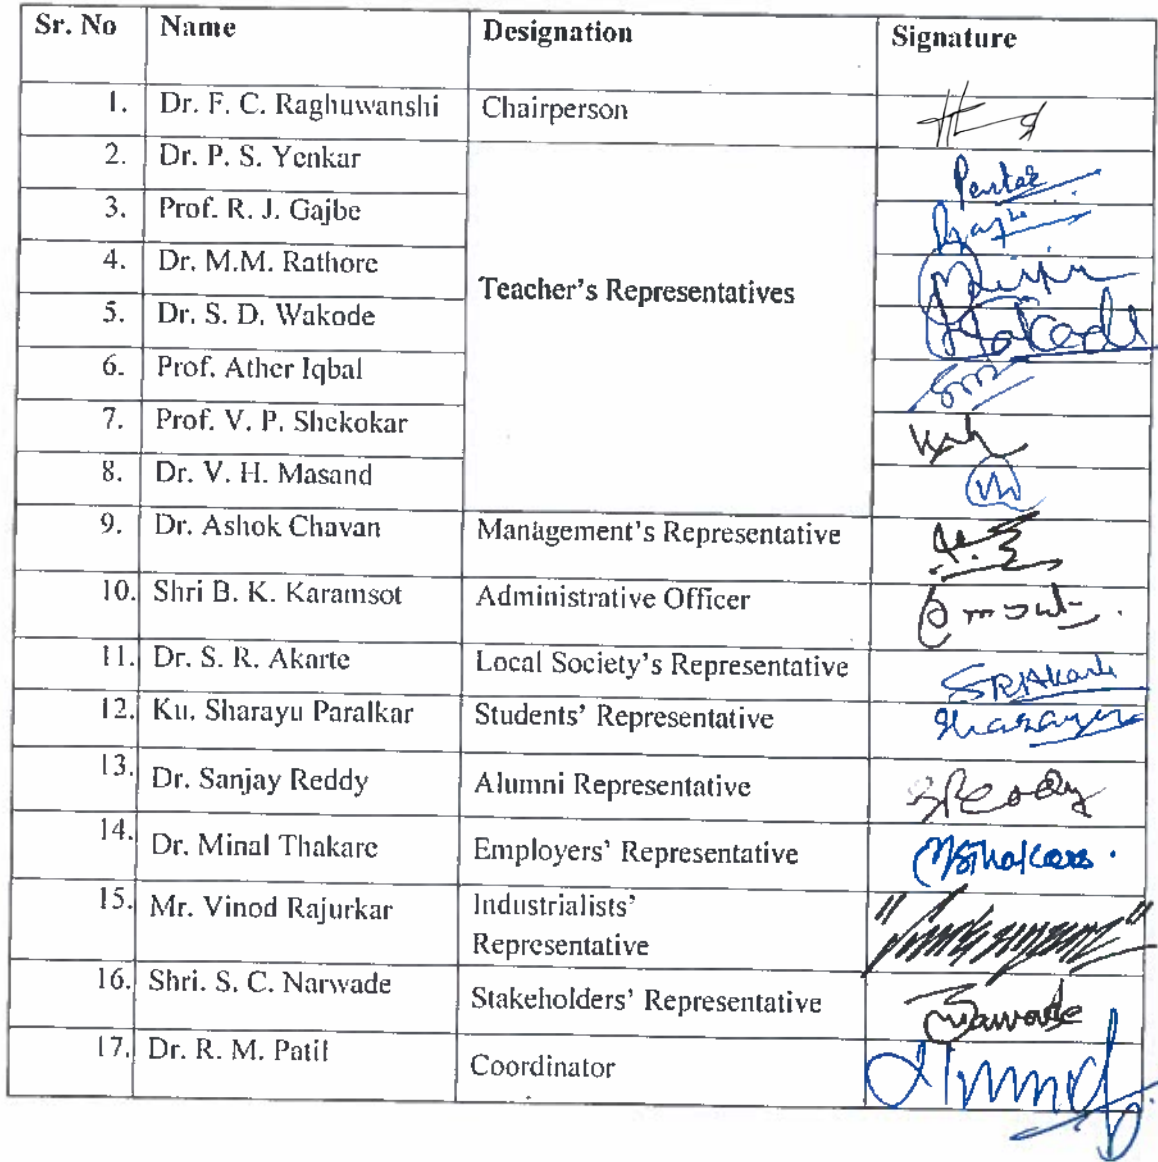 Sr. No Name Designation Signature
1. Dr. F. C. Raghuwanshi Chairperson
2. Dr. P. S. Yenkar
3. Prof. R. J. Gajbe
4. Dr. M.M. Rathore
Teacher's Representatives
5. Dr. S. D. Wakode
6. Prof. Ather Iqbal
7. Prof. V. P. Shekokar
8. Dr. V. H. Masand
9. Dr. Ashok Chavan Management's Representative
10. Shri B. K. Karamsot Administrative Officer
11. Dr. S. R. Akarte Local Society's Representative
12. Ku. Sharayu Paralkar Students' Representative
13. Dr. Sanjay Reddy Alumni Representative
14. Dr. Minal Thakare Employers' Representative
15. Mr. Vinod Rajurkar Industrialists'
Representative
16. Shri. S. C. Narwade Stakeholders' Representative
17. Dr. R. M. Patil Coordinator